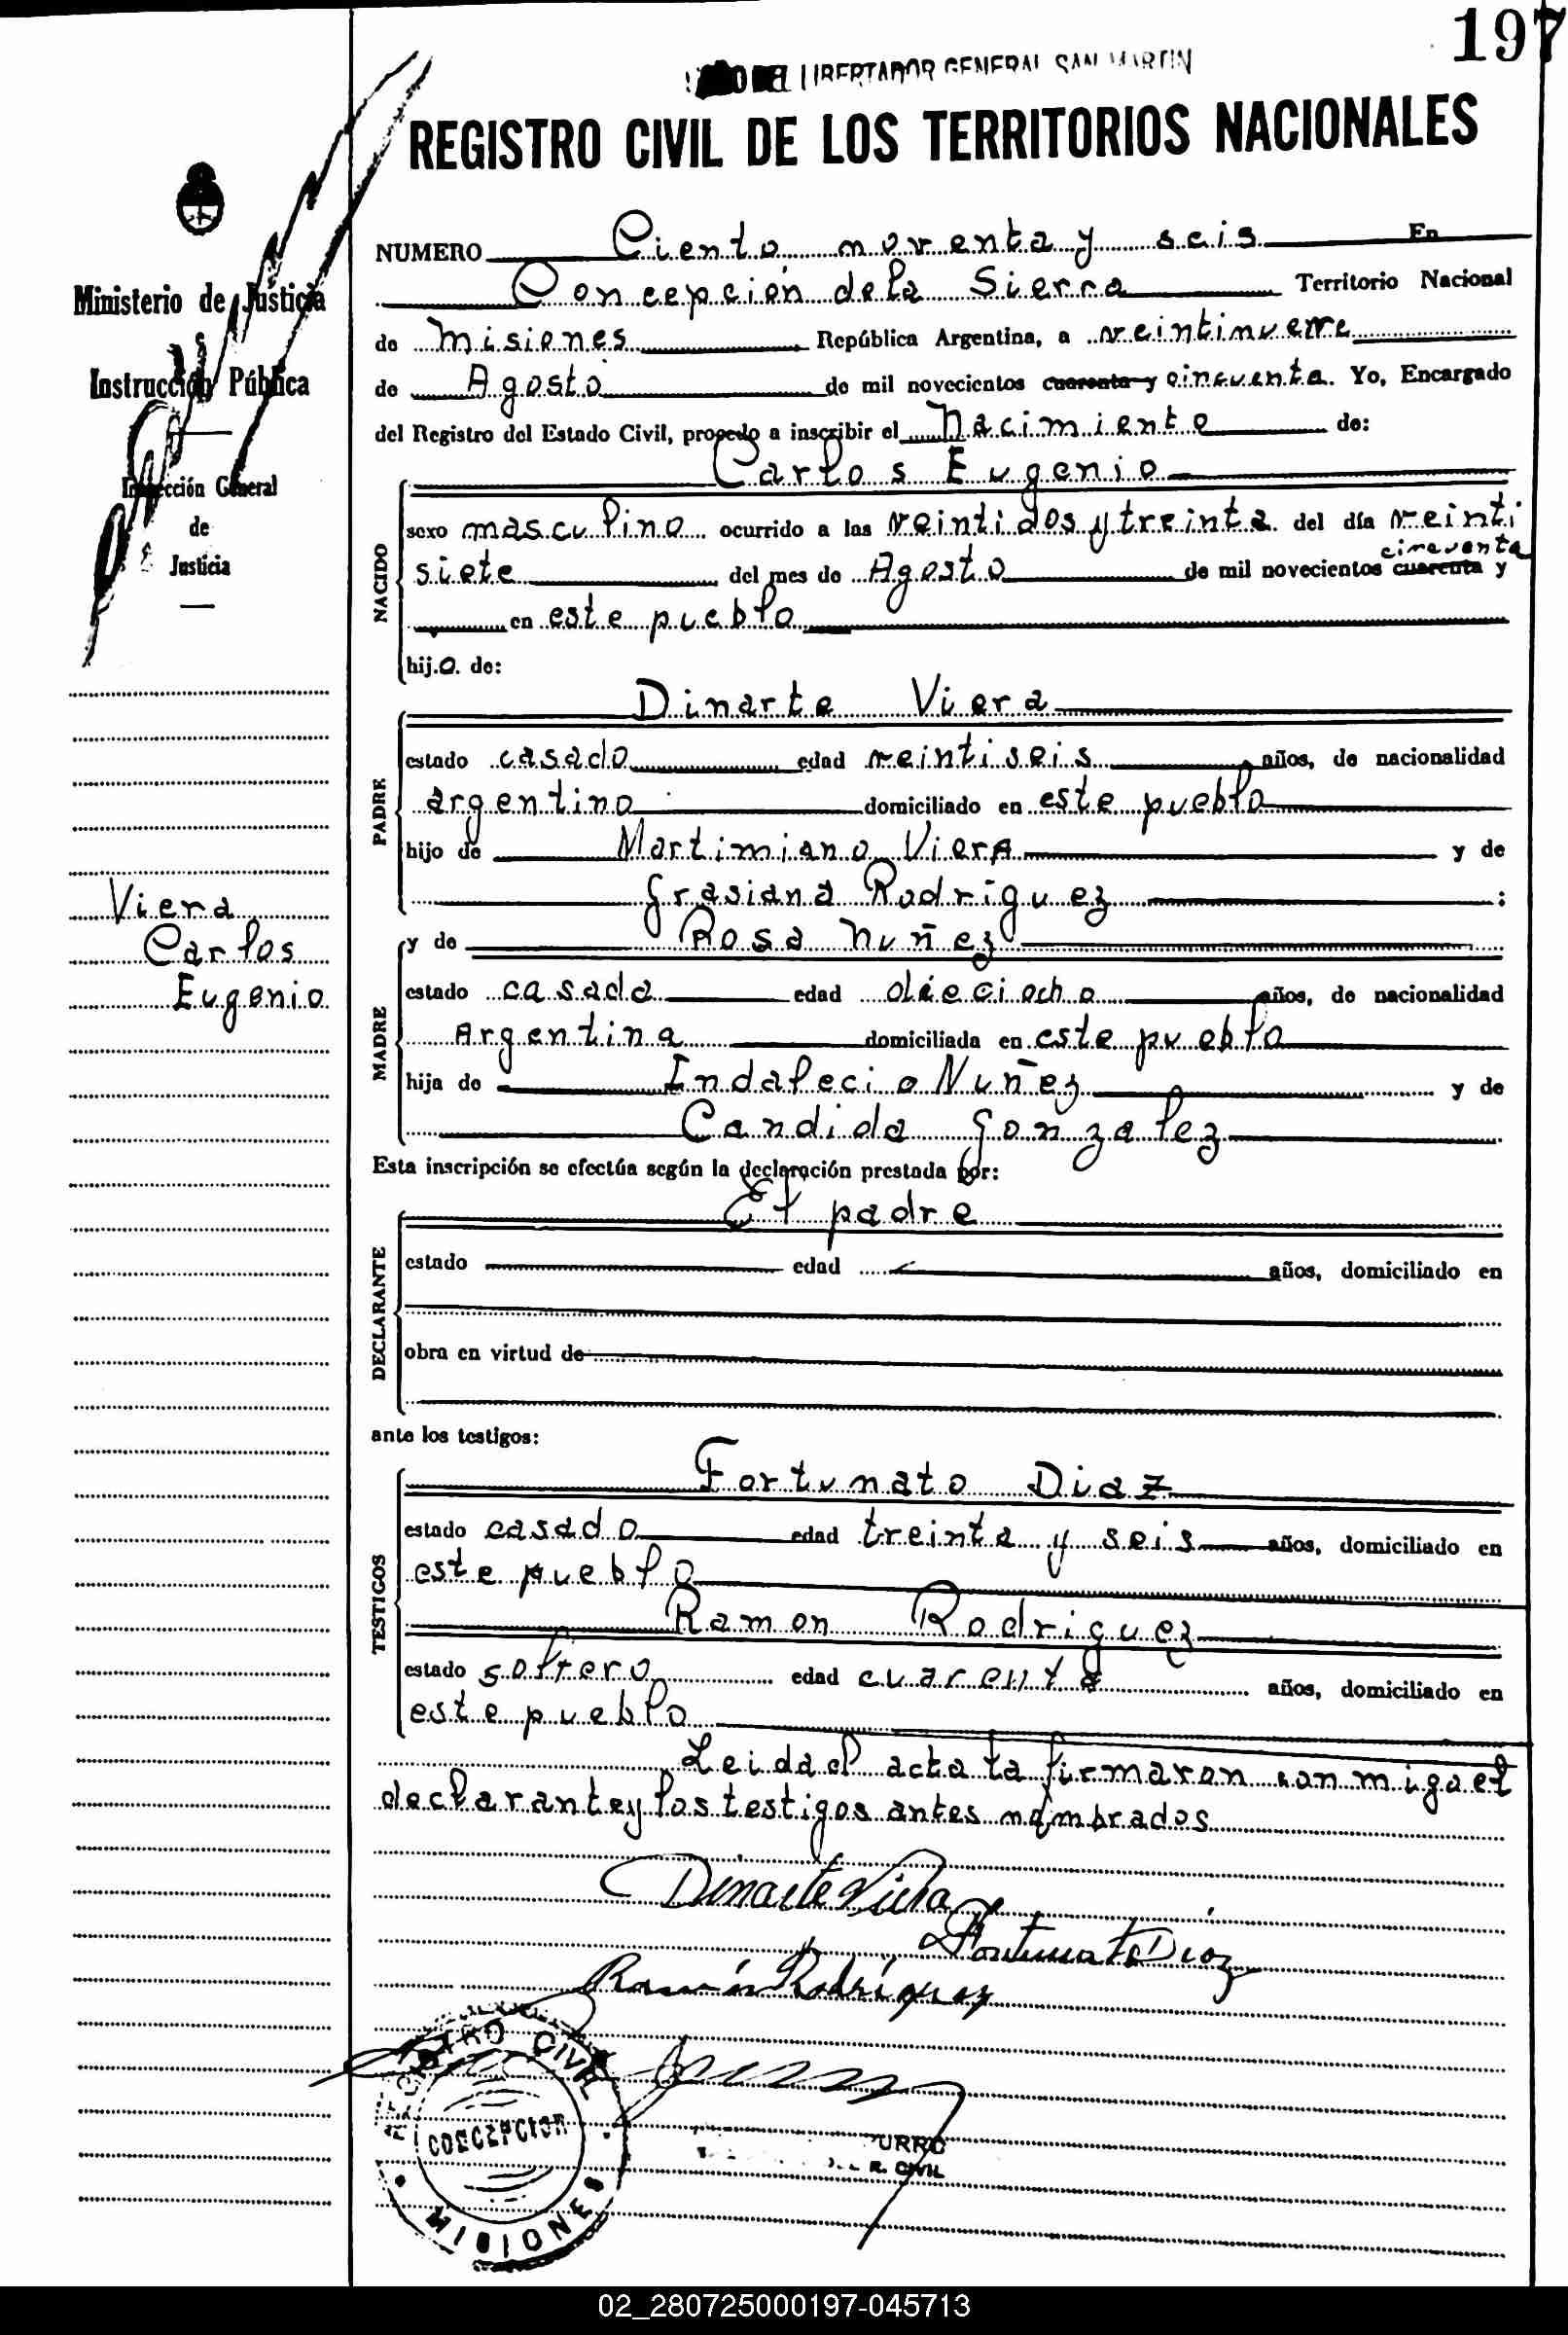 197
LIBERTADOR GENERAL SAN MARTIN
REGISTRO CIVIL DE LOS TERRITORIOS NACIONALES
Ministerio de Justicia
Instrucción Pública
Inspección General
de
Justicia
NUMERO Ciento noventa y seis En
Concepción de la Sierra Territorio Nacional
de Misiones República Argentina, a veintinueve
de Agosto de mil novecientos cuarenta y cincuenta. Yo, Encargado
del Registro del Estado Civil, procedo a inscribir el Nacimiento de:
NACIDO
Carlos Eugenio
sexo masculino ocurrido a las veintidos y treinta del día veinti
cincuenta
siete del mes de Agosto de mil novecientos cuarenta y
en este pueblo
hijo de:
PADRE
Dinarte Viera
estado casado edad veintiseis años, de nacionalidad
argentino domiciliado en este pueblo
hijo de Martimiano Viera y de
Grasiana Rodriguez :
Viera
Carlos
Eugenio
MADRE
y de Rosa Nuñez
estado casada edad dieciocho años, de nacionalidad
Argentina domiciliada en este pueblo
hija de Indalecio Nuñez y de
Candida Gonzalez
Esta inscripción se efectúa según la declaración prestada por:
DECLARANTE
El padre
estado edad años, domiciliado en
obra en virtud de
ante los testigos:
TESTIGOS
Fortunato Diaz
estado casado edad treinta y seis años, domiciliado en
este pueblo
Ramon Rodriguez
estado soltero edad cuarenta años, domiciliado en
este pueblo
Leida el acta la firmaron conmigo el
declarante y los testigos antes nombrados
Dinarte Viera
Fortunato Diaz
Ramón Rodríguez
REGISTRO CIVIL
CONCEPCION
MISIONES
R. CIVIL
02_280725000197-045713